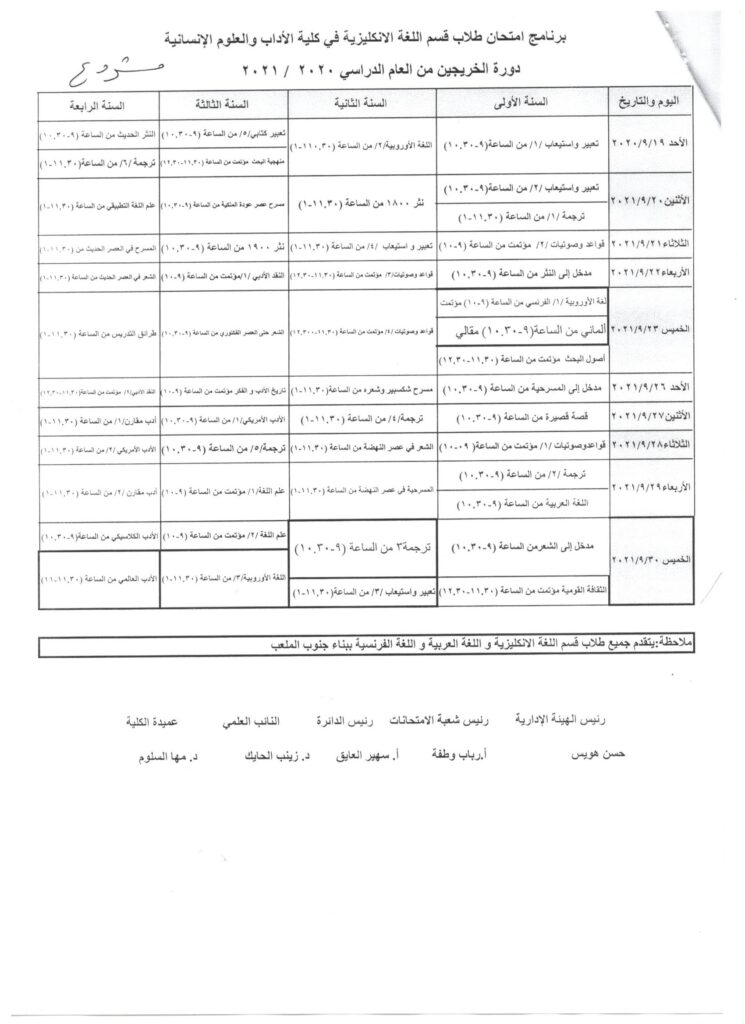 برنامج امتحان طلاب قسم اللغة الانكليزية في كلية الأداب والعلوم الإنسانية
دورة الخريجين من العام الدراسي ٢٠٢٠ / ٢٠٢١
مشروع
اليوم والتاريخ السنة الأولى السنة الثانية السنة الثالثة السنة الرابعة
الأحد ٢٠٢٠/٩/١٩ تعبير واستيعاب /١/ من الساعة(٩-١٠,٣٠) اللغة الأوروبية/٢/ من الساعة (١١٠,٣٠-١) تعبير كتابي/٥/ من الساعة (٩-١٠,٣٠) النثر الحديث من الساعة (٩-١٠,٣٠)
منهجية البحث مؤتمت من الساعة (١١,٣٠-١٢,٣٠) ترجمة /٦/ من الساعة(١١,٣٠-١)
الأثنين ٢٠٢١/٩/٢٠ تعبير واستيعاب /٢/ من الساعة (٩-١٠,٣٠) نثر ١٨٠٠ من الساعة (١١,٣٠-١) مسرح عصر عودة الملكية من الساعة (٩-١٠,٣٠) علم اللغة التطبيقي من الساعة (١١,٣٠-١)
ترجمة /١/ من الساعة (١١,٣٠-١)
الثلاثاء ٢٠٢١/٩/٢١ قواعد وصوتيات /٢/ مؤتمت من الساعة (٩-١٠) تعبير و استيعاب /٤/ من الساعة (١١,٣٠-١) نثر ١٩٠٠ من الساعة (٩-١٠,٣٠) المسرح في العصر الحديث من (١١,٣٠-١)
الأربعاء ٢٠٢١/٩/٢٢ مدخل إلى النثر من الساعة (٩-١٠,٣٠) قواعد وصوتيات/٣/ مؤتمت من الساعة (١١,٣٠-١٢,٣٠) النقد الأدبي /١/مؤتمت من الساعة (٩-١٠) الشعر في العصر الحديث من الساعة (١١,٣٠-١)
الخميس ٢٠٢١/٩/٢٣ لغة الأوروبية /١/ الفرنسي من الساعة (٩-١٠) مؤتمت قواعد وصوتيات /٤/ مؤتمت من الساعة (١١,٣٠-١٢,٣٠) الشعر حتى العصر الفكتوري من الساعة (٩-١٠,٣٠) طرائق التدريس من الساعة (١١,٣٠-١)
ألماني من الساعة(٩-١٠,٣٠) مقالي
أصول البحث مؤتمت من الساعة (١١,٣٠-١٢,٣٠)
الأحد ٢٠٢١/٩/٢٦ مدخل إلى المسرحية من الساعة (٩-١٠,٣٠) مسرح شكسبير وشعره من الساعة (١١,٣٠-١) تاريخ الأدب و الفكر مؤتمت من الساعة (٩-١٠) النقد الأدبي/٢/ مؤتمت من الساعة (١١,٣٠-١٢,٣٠)
الأثنين ٢٠٢١/٩/٢٧ قصة قصيرة من الساعة (٩-١٠,٣٠) ترجمة/٤/ من الساعة (١١,٣٠-١) الأدب الأمريكي/١/ من الساعة (٩-١٠,٣٠) أدب مقارن/١/ من الساعة (١١,٣٠-١)
الثلاثاء ٢٠٢١/٩/٢٨ قواعدوصوتيات /١/ مؤتمت من الساعة (٠٩-١٠) الشعر في عصر النهضة من الساعة (١١,٣٠-١) ترجمة/٥/ من الساعة (٩-١٠,٣٠) الأدب الأمريكي /٢/ من الساعة (١١,٣٠-١)
الأربعاء ٢٠٢١/٩/٢٩ ترجمة /٢/ من الساعة (٩-١٠,٣٠) المسرحية في عصر النهضة من الساعة (١١,٣٠-١) علم اللغة/١/ مؤتمت من الساعة (٩-١٠) أدب مقارن /٢/ من الساعة (١١,٣٠-١)
اللغة العربية من الساعة (٩-١٠,٣٠)
الخميس ٢٠٢١/٩/٣٠ مدخل إلى الشعرمن الساعة (٩-١٠,٣٠) ترجمة٣ من الساعة (٩-١٠,٣٠) علم اللغة /٢/ مؤتمت من الساعة (٩-١٠) الأدب الكلاسيكي من الساعة(٩-١٠,٣٠)
الثقافة القومية مؤتمت من الساعة (١١,٣٠-١٢,٣٠) تعبير واستيعاب /٣/ من الساعة(١١,٣٠-١) اللغة الأوروبية/٣/ من الساعة (١١,٣٠-١) الأدب العالمي من الساعة (١١,٣٠-١١)
ملاحظة:يتقدم جميع طلاب قسم اللغة الانكليزية و اللغة العربية و اللغة الفرنسية ببناء جنوب الملعب
رئيس الهيئة الإدارية رئيس شعبة الامتحانات رئيس الدائرة النائب العلمي عميدة الكلية
حسن هويس أ.رباب وطفة أ. سهير العايق د. زينب الحايك د. مها السلوم